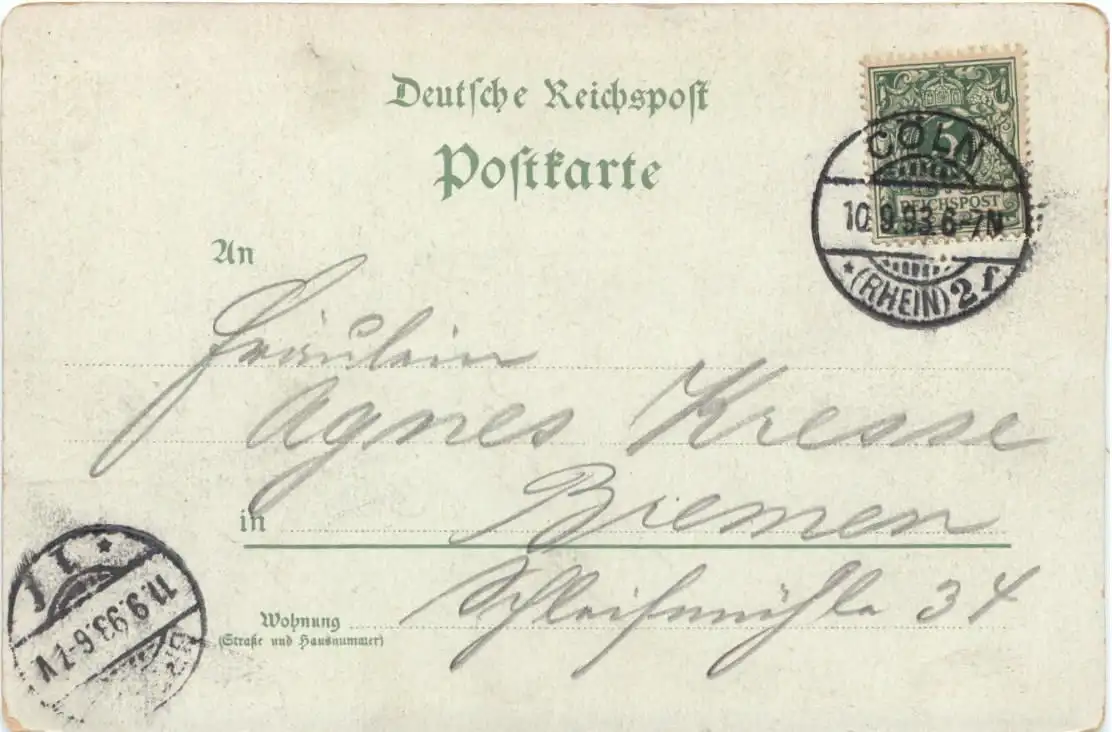 Deutsche Reichspost
Postkarte
5
REICHSPOST
CÖLN
10.9.93.6-7N
* (RHEIN) 2f
An
Fräulein
Agnes Kresse
in Bremen
Wohnung
(Straße und Hausnummer)
Schleifmühle 34
11.9.93.6-7V
1 *